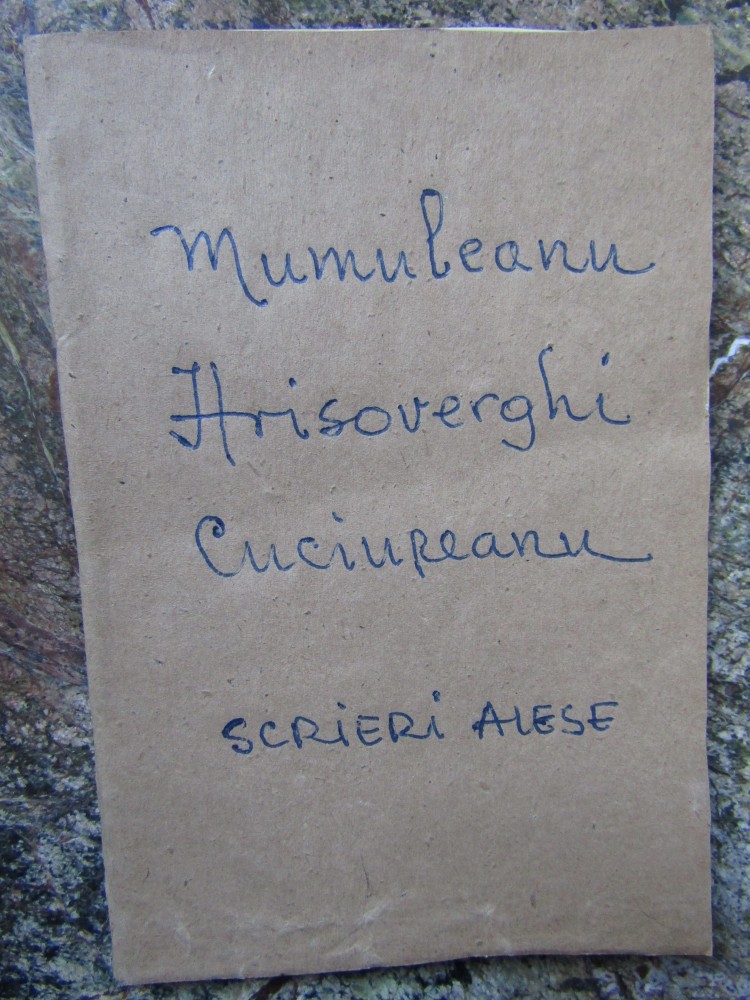 Mumuleanu
Hrisoverghi
Cuciureanu
SCRIERI ALESE